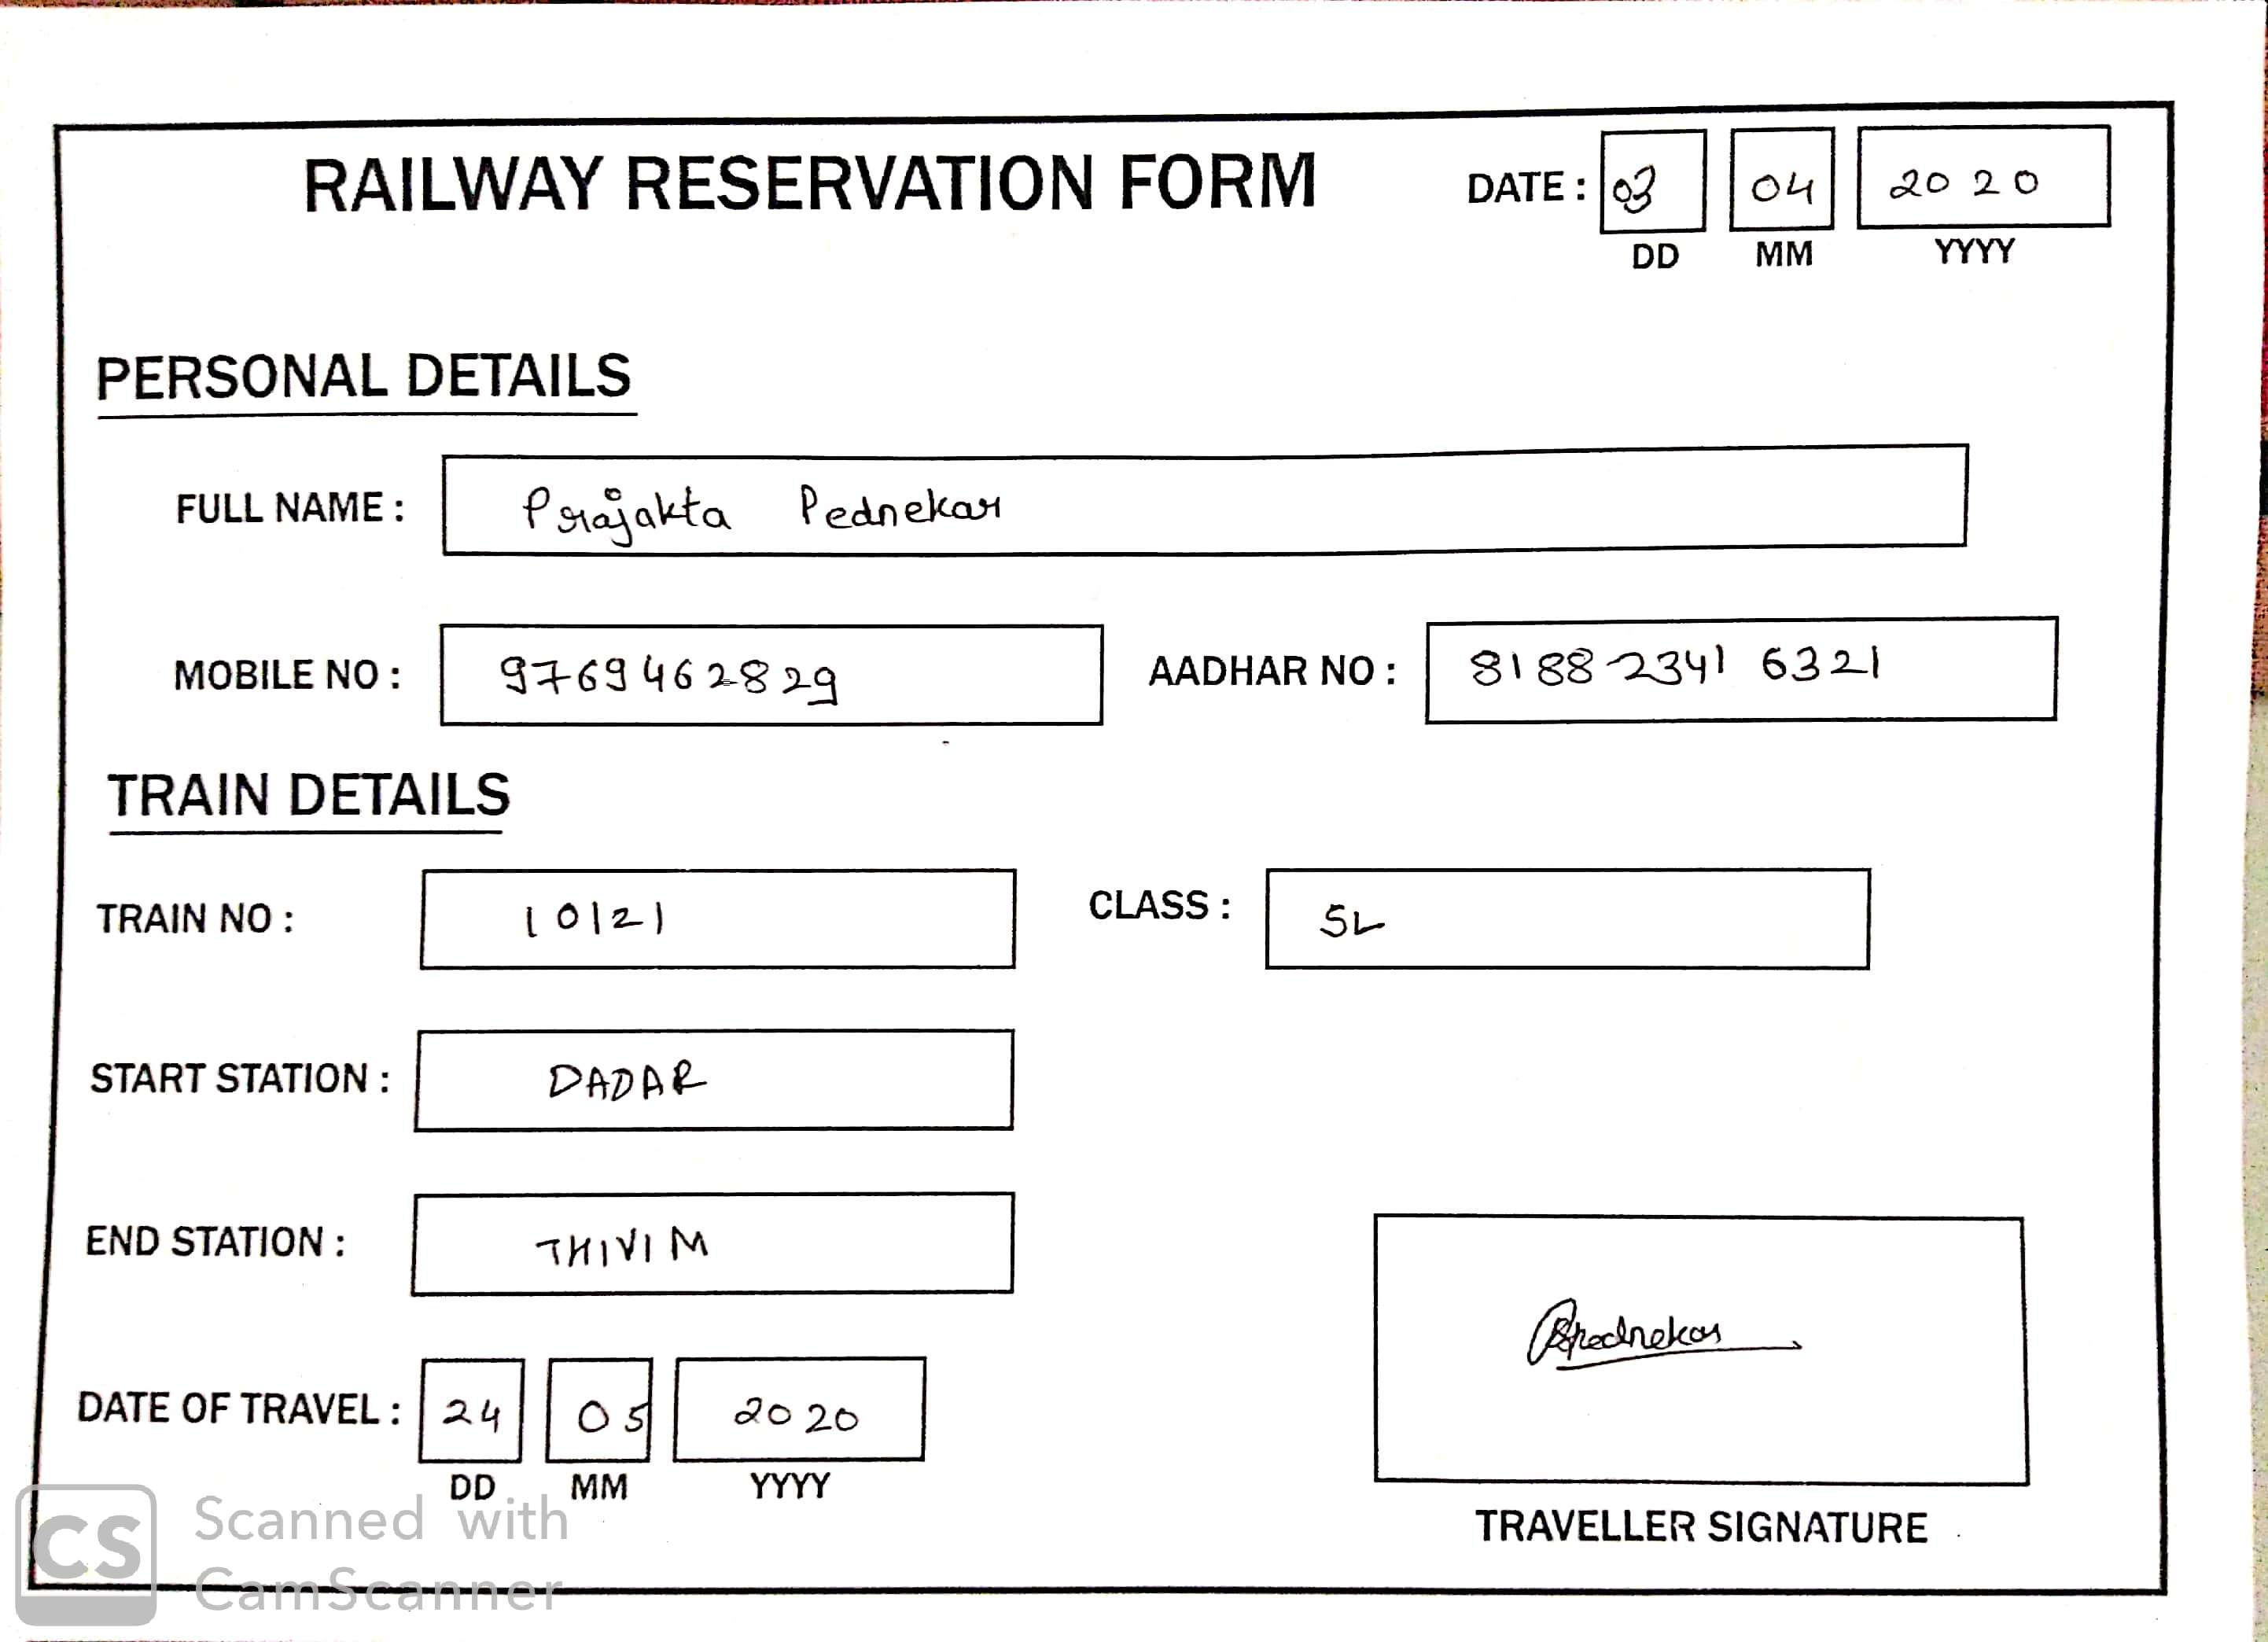 RAILWAY RESERVATION FORM DATE : 03 04 2020
DD MM YYYY
PERSONAL DETAILS
FULL NAME : Prajakta Pednekar
MOBILE NO : 9769462829 AADHAR NO : 8188 2341 6321
TRAIN DETAILS
TRAIN NO : 10121 CLASS : SL
START STATION : DADAR
END STATION : THIVIM
DATE OF TRAVEL : 24 05 2020
DD MM YYYY
TRAVELLER SIGNATURE
CS Scanned with
CamScanner